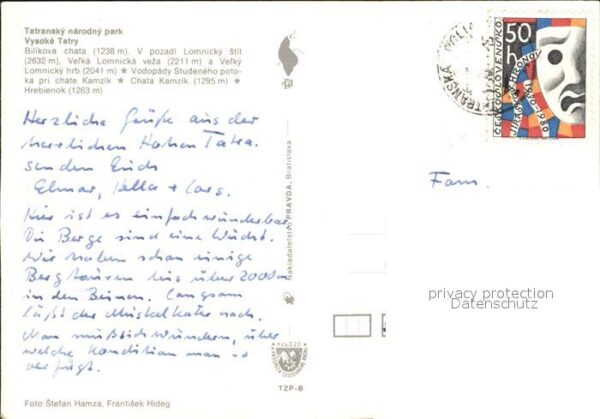 Tatranský národný park
Vysoké Tatry
Bilíkova chata (1238 m). V pozadí Lomnický štít
(2632 m), Veľká Lomnická veža (2211 m) a Veľký
Lomnický hrb (2041 m) ★ Vodopády Studeného poto-
ka pri chate Kamzík ★ Chata Kamzík (1295 m) ★
Hrebienok (1263 m)
Herzliche Grüße aus der
herrlichen Hohen Tatra
senden Euch
Elmar, + Lars.
Hier ist es einfach wunderbar
Die Berge sind eine Wucht.
Wir haben schon einige
Bergtouren bis über 2000 m
in den Beinen. Langsam
läßt der Muskelkater nach.
Man muß sich wundern, über
welche Kondition man so
verfügt.
Foto Štefan Hamza, František Hideg
Nakladateľstvo PRAVDA, Bratislava
TZP-B
TATRANSKÁ
50
h
ČESKOSLOVENSKO
HRONOV
Fam.
privacy protection
Datenschutz